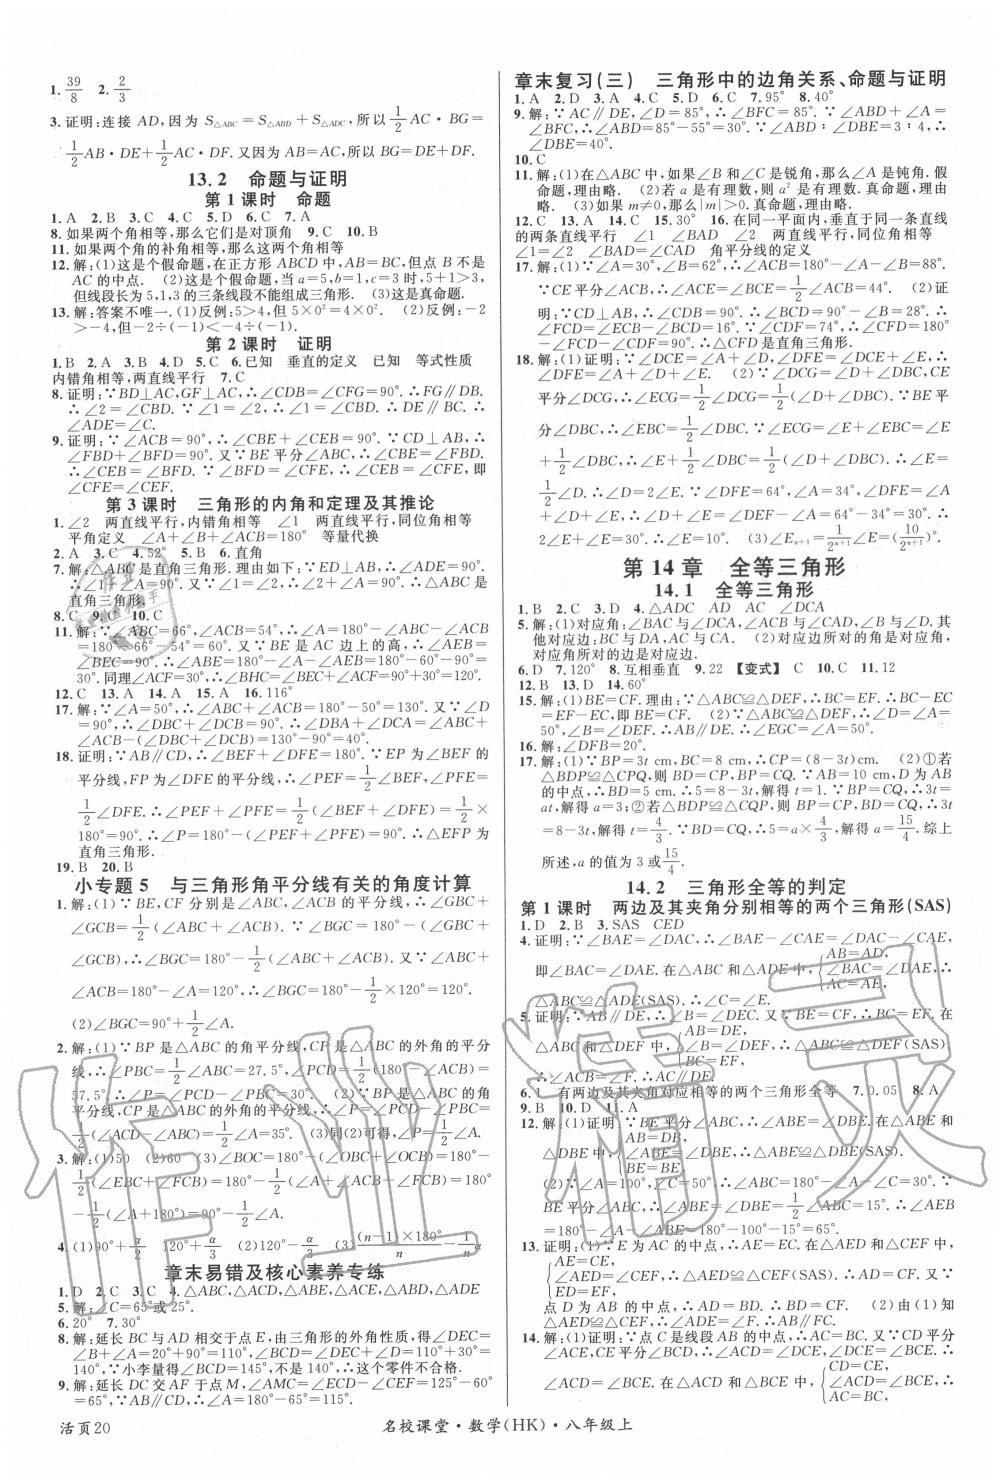 1. 39/8 2. 2/3
3. 证明:连接 AD,因为 S△ABC=S△ABD+S△ADC,所以 1/2 AC·BG=
1/2 AB·DE+1/2 AC·DF.又因为 AB=AC,所以 BG=DE+DF.
13.2 命题与证明
第 1 课时 命题
1. A 2. B 3. C 4. D 5. C 6. C 7. A
8. 如果两个角相等,那么它们是对顶角 9. C 10. B
11. 如果两个角的补角相等,那么这两个角相等
12. 解:(1)这是个假命题,在正方形 ABCD 中,AB=BC,但点 B 不是
AC 的中点. (2)这是个假命题,当 a=5,b=1,c=3 时,5+1>3,
但线段长为 5,1,3 的三条线段不能组成三角形. (3)这是真命题.
13. 解:答案不唯一.(1)反例:5>4,但 5×0²=4×0². (2)反例:-2
>-4,但-2÷(-1)<-4÷(-1).
第 2 课时 证明
1. B 2. A 3. B 4. D 5. C 6. 已知 垂直的定义 已知 等式性质
内错角相等,两直线平行 7. C
8. 证明:∵BD⊥AC,GF⊥AC,∴∠CDB=∠CFG=90°.∴FG∥DB.
∴∠2=∠CBD.∵∠1=∠2,∴∠1=∠CBD.∴DE∥BC.∴
∠ADE=∠C.
9. 证明:∵∠ACB=90°,∴∠CBE+∠CEB=90°.∵CD⊥AB,∴
∠FBD+∠BFD=90°.又∵BE 平分∠ABC,∴∠CBE=∠FBD.
∴∠CEB=∠BFD.∵∠BFD=∠CFE,∴∠CEB=∠CFE,即
∠CFE=∠CEF.
第 3 课时 三角形的内角和定理及其推论
1. ∠2 两直线平行,内错角相等 ∠1 两直线平行,同位角相等
平角定义 ∠A+∠B+∠ACB=180° 等量代换
2. A 3. C 4. 52° 5. B 6. 直角
7. 解:△ABC是直角三角形.理由如下:∵ED⊥AB,∴∠ADE=90°.
∴∠1+∠A=90°.又∵∠1=∠2,∴∠2+∠A=90°.∴△ABC是
直角三角形.
8. C 9. C 10. C
11. 解:∵∠ABC=66°,∠ACB=54°,∴∠A=180°-∠ABC-∠ACB
=180°-66°-54°=60°.又∵BE 是 AC 边上的高,∴∠AEB
=90°.∴∠ABE=180°-∠A-∠AEB=180°-60°-90°=30°.
同理∠ACF=30°,∴∠BHC=∠BEC+∠ACF=90°+30°=120°.
12. C 13. A 14. A 15. A 16. 116°
17. 解:∵∠A=50°,∴∠ABC+∠ACB=180°-50°=130°.又∵∠D
=90°,∴∠DBC+∠DCB=90°.∴∠DBA+∠DCA=∠ABC+
∠ACB-(∠DBC+∠DCB)=130°-90°=40°.
18. 证明:∵AB∥CD,∴∠BEF+∠DFE=180°.∵EP 为∠BEF 的
平分线,FP 为∠DFE 的平分线,∴∠PEF=1/2∠BEF,∠PFE=
1/2∠DFE.∴∠PEF+∠PFE=1/2(∠BEF+∠DFE)=1/2×
180°=90°.∴∠P=180°-(∠PEF+∠PFE)=90°.∴△EFP 为
直角三角形.
19. B 20. B
小专题 5 与三角形角平分线有关的角度计算
1. 解:(1)∵BE,CF 分别是∠ABC,∠ACB 的平分线,∴∠GBC+
∠GCB=1/2(∠ABC+∠ACB).∵∠BGC=180°-(∠GBC+
∠GCB),∴∠BGC=180°-1/2(∠ABC+∠ACB).又∵∠ABC+
∠ACB=180°-∠A=120°,∴∠BGC=180°-1/2×120°=120°.
(2)∠BGC=90°+1/2∠A.
2. 解:(1)∵BP 是△ABC的角平分线,CP是△ABC 的外角的平分
线,∴∠PBC=1/2∠ABC=
57.5°.∴∠P=
平分线,CP是△ABC的外角的平分线,∴∠P=∠PCD-∠PBC=
1/2(∠ACD-∠ABC)=1/2∠A=35°. (3)同(2)可得,∠P=1/2∠A.
3. 解:(1)50 (2)60 (3)∠BOC=180°-(∠OBC+∠OCB)=180°-
1/2(∠EBC+∠FCB)=180°-1/2(∠A+∠ACB+∠FCB)=180°-
1/2(180°+∠A)=90°-1/2∠A.
4. (1)90°+α/2 120°+α/3 (2)120°-α/3 (3)(n-1)×180°/n - 1/n α
章末易错及核心素养专练
1. D 2. C 3. C 4. △ABC,△ACD,△ABE,△ABD,△ADE
5. 解:∠C=65°或25°.
6. 20° 7. 30°
8. 解:延长 BC 与 AD 相交于点 E,由三角形的外角性质,得∠DEC=
∠A+∠B=20°+90°=110°,∴∠BCD=∠DEC+∠D=110°+35°
=145°.∵小李量得∠BCD=140°,不是145°,∴这个零件不合格.
9. 解:延长 DC 交 AF 于点 M,∠AMC=∠ECD-∠CEF=125°-60°
=65°,∵AB∥CD,∴∠BAF=180°-∠AMC=180°-65°=115°.
活页20
章末复习(三) 三角形中的边角关系、命题与证明
1. A 2. D 3. A 4. C 5. D 6. C 7. 95° 8. 40°
9. 解:∵AC∥DE,∠D=85°,∴∠BFC=85°.∵∠ABD+∠A=
∠BFC,∴∠ABD=85°-55°=30°.∵∠ABD:∠DBE=3:4,
∴∠DBE=40°.
10. C
11. 解:(1)在△ABC 中,如果∠B 和∠C 是锐角,那么∠A 是钝角.假
命题,理由略. (2)若 a 是有理数,则 a² 是有理数.真命题,理由
略. (3)如果 m≠0,那么|m|>0.真命题,理由略.
12. C 13. A 14. C 15. 30° 16. 在同一平面内,垂直于同一条直线
的两条直线平行 ∠1 ∠BAD ∠2 两直线平行,同位角相等
∠1=∠2 ∠BAD=∠CAD 角平分线的定义
17. 解:(1)∵∠A=30°,∠B=62°,∴∠ACB=180°-∠A-∠B=88°.
∵CE平分∠ACB,∴∠ACE=∠BCE=1/2∠ACB=44°. (2)证
明:∵CD⊥AB,∴∠CDB=90°.∴∠BCD=90°-∠B=28°.∴
∠FCD=∠ECB-∠BCD=16°.∵∠CDF=74°,∴∠CFD=180°
-∠FCD-∠CDF=90°.∴△CFD是直角三角形.
18. 解:(1)证明:∵∠DCE=∠A+∠D,∠DFE=∠DCE+∠E,∴
∠DFE=∠A+∠D+∠E. (2)∵∠DCG=∠D+∠DBC,CE
平分∠DCG,∴∠ECG=1/2∠DCG=1/2(∠D+∠DBC).∵BE平
分∠DBC,∴∠EBC=1/2∠DBC.∵∠ECG=∠E+∠EBC=∠E
+1/2∠DBC,∴∠E+1/2∠DBC=1/2(∠D+∠DBC).∴∠E=
1/2∠D.∵∠A=30°,∠DFE=64°,∴∠DFE=64°=∠A+
∠D+∠E.∴∠D+∠E=∠DEF-∠A=64°-34°=30°.∴
∠E=10°. (3)∠Eₙ₊₁=1/2ⁿ⁺¹∠E=(10/2ⁿ⁺¹)°.
第 14 章 全等三角形
14.1 全等三角形
1. B 2. C 3. D 4. △ADC AD AC ∠DCA
5. 解:(1)对应角:∠BAC与∠DCA,∠ACB与∠CAD,∠B与∠D.其
他对应边:BC与DA,AC与CA. (2)对应边所对的角是对应角,
对应角所对的边是对应边.
6. D 7. 120° 8. 互相垂直 9. 22 【变式】 C 10. C 11. 12
12. B 13. D 14. 60°
15. 解:(1)BE=CF.理由:∵△ABC≌△DEF,∴BC=EF.∴BC-EC
=EF-EC,即BE=CF. (2)∵△ABC≌△DEF,∴∠D=∠A=
50°,∠B=∠DEF.∴AB∥DE.∴∠EGC=∠A=50°.
16. 解:∠DFB=20°.
17. 解:(1)∵BP=3t cm,BC=8 cm,∴CP=(8-3t)cm. (2)①若
△BDP≌△CPQ,则 BD=CP,BP=CQ.∵AB=10 cm,D 为AB
的中点,∴BD=5 cm.∴5=8-3t,解得t=1.∵BP=CQ,∴3t=
at,解得a=3;②若△BDP≌△CQP,则 BP=CP,BD=CQ,∴3t
=8-3t,解得 t=4/3.∵BD=CQ,∴5=a×4/3,解得 a=15/4.综上
所述,a 的值为 3 或15/4.
14.2 三角形全等的判定
第 1 课时 两边及其夹角分别相等的两个三角形(SAS)
1. D 2. B 3. SAS CED
4. 证明:∵∠BAE=∠DAC,∴∠BAE-∠CAE=∠DAC-∠CAE,
即∠BAC=∠DAE.在△ABC 和△ADE中,{AB=AD, ∠BAC=∠DAE, AC=AE,
∴△ABC≌△ADE(SAS).∴∠C=∠E.
5. 证明:∵AB∥DE,∴∠B=∠DEC.又∵BE=CF,∴BC=EF.在
△ABC和△DEF中,{AB=DE, ∠B=∠DEF, BC=EF, ∴△ABC≌△DEF(SAS).
∴∠ACB=∠F.∴AC∥DF.
6. 1 有两边及其夹角对应相等的两个三角形全等 7. 0.05 8. A
9. B 10. D 11. A
12. 解:(1)证明:∵BE平分∠ABC,∴∠ABE=∠DBE.在△ABE和
△DBE中,{AB=DB, ∠ABE=∠DBE, BE=BE, ∴△ABE≌△DBE(SAS).
(2)∵∠A=100°,∠C=50°,∴∠ABC=180°-∠A-∠C=30°.∵
BE平分∠ABC,∴∠ABE=∠DBE=1/2∠ABC=15°.∴∠AEB
=180°-∠A-∠ABE=180°-100°-15°=65°.
13. 证明:(1)∵E 为 AC 的中点,∴AE=CE.在△AED和△CEF中,
{AE=CE, ∠AED=∠CEF, DE=EF, ∴△AED≌△CEF(SAS).∴AD=CF.又∵
点 D 为 AB 的中点,∴AD=BD.∴BD=CF. (2)由(1)知
△AED≌△CEF,∴∠A=∠ACF.∴AB∥FC.
14. 解:(1)证明:∵点C是线段 AB 的中点,∴AC=BC.又∵CD平分
∠ACE,CE平分∠BCD,∴∠ACD=∠DCE,∠DCE=∠BCE.∴
∠ACD=∠BCE.在△ACD 和△BCE 中,{CD=CE, ∠ACD=∠BCE, AC=BC,
名校课堂·数学(HK)·八年级上
作业精灵